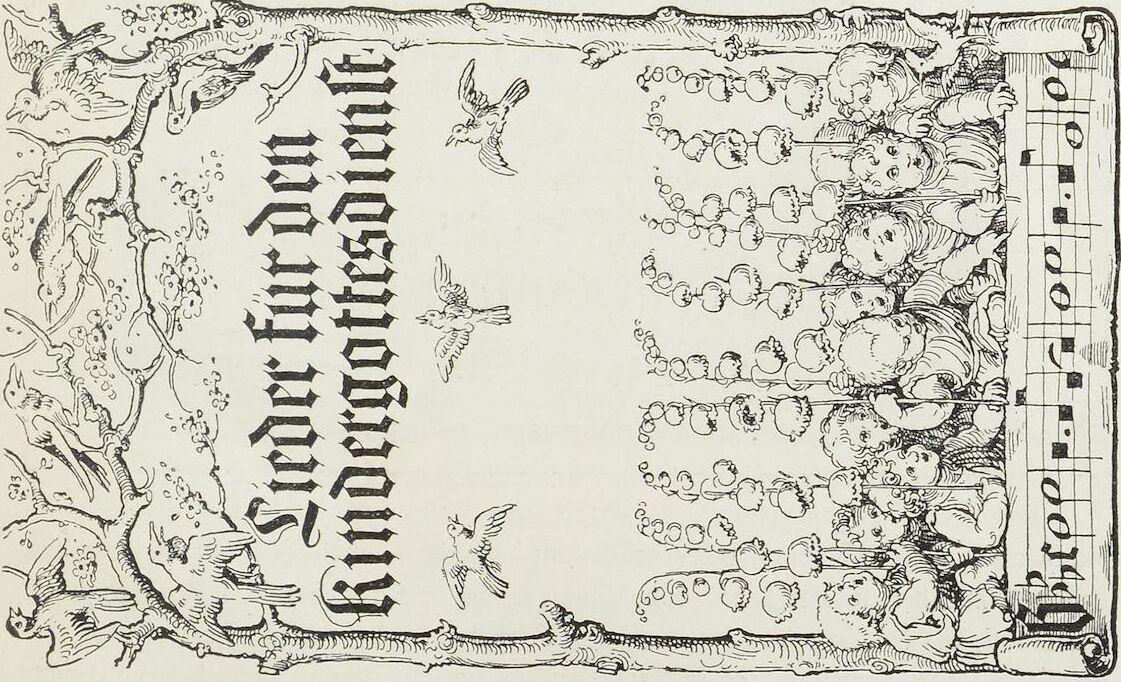 Lieder für den
Kindergottesdienst.